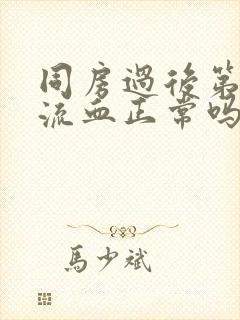 同房過後第
流血正常吗
馬少斌